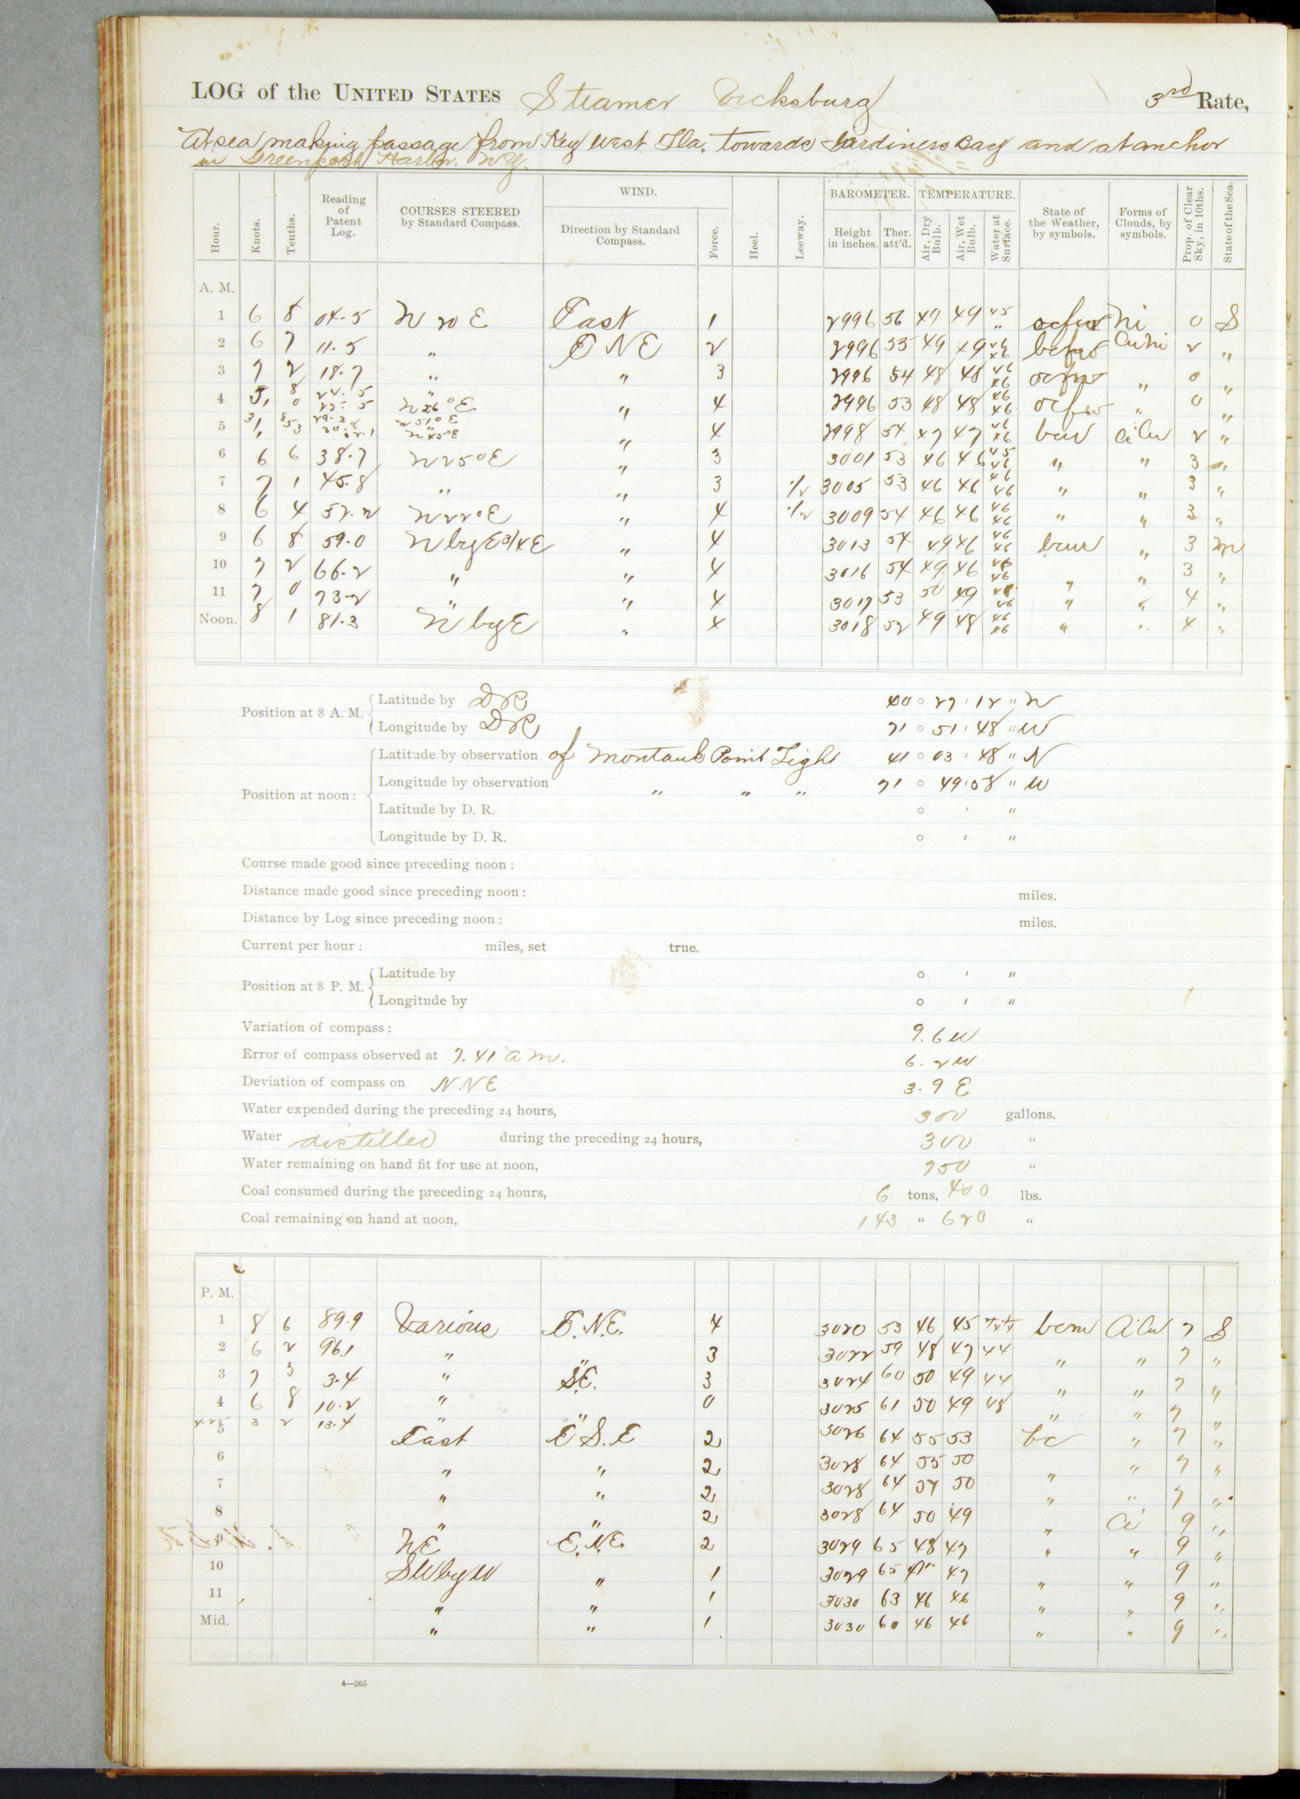 LOG of the UNITED STATES Steamer Vicksburg 3rd Rate,
At sea making passage from Key West Fla. towards Gardiners Bay and at anchor
in Greenport Harbor. N.Y.
Hour. Knots. Tenths. Reading of Patent Log. COURSES STEERED by Standard Compass. WIND. Direction by Standard Compass. Force. Heel. Leeway. BAROMETER. Height in inches. Ther. att'd. TEMPERATURE. Air, Dry Bulb. Air, Wet Bulb. Water at Surface. State of the Weather, by symbols. Forms of Clouds, by symbols. Prop. of Clear Sky, in 10ths. State of the Sea.
A. M.
1 6 8 04.5 N 20 E East 1 2996 56 49 49 45 " ocfw Ni 0 S
2 6 7 11.5 " ENE 2 2996 55 49 49 46 46 bcfw CuNi 2 "
3 7 2 18.7 " " 3 2996 54 48 48 46 46 ocfw " 0 "
4 5 8 24.5 N26°E " 4 2996 53 48 48 46 46 ocfw " 0 "
5 N45°E " 4 2998 54 47 47 46 46 bcw CiCu 2 "
6 6 6 38.7 N25°E " 3 3001 53 46 46 45 46 " " 3 "
7 7 1 45.8 " " 3 1/2 3005 53 46 46 46 46 " " 3 "
8 6 4 52.2 N22°E " 4 1/2 3009 54 46 46 46 46 " " 3 "
9 6 8 59.0 NbyE3/4E " 4 3013 54 49 46 46 46 bcm " 3 M
10 7 2 66.2 " " 4 3016 54 49 46 46 46 " " 3 "
11 7 0 73.2 " " 4 3017 53 50 49 46 46 " " 4 "
Noon. 8 1 81.3 N by E " 4 3018 52 49 48 46 46 " " 4 "
Position at 8 A. M. Latitude by DR 40 ° 27 ' 12 " N
Longitude by DR 71 ° 51 ' 48 " W
Position at noon: Latitude by observation of Montauk Point Light 41 ° 03 ' 48 " N
Longitude by observation " " " 71 ° 49 ' 58 " W
Latitude by D. R. ° ' "
Longitude by D. R. ° ' "
Course made good since preceding noon:
Distance made good since preceding noon: miles.
Distance by Log since preceding noon: miles.
Current per hour: miles, set true.
Position at 8 P. M. Latitude by ° ' "
Longitude by ° ' "
Variation of compass: 9.6 W
Error of compass observed at 7.41 am. 6.2 W
Deviation of compass on N.NE 3.9 E
Water expended during the preceding 24 hours, 300 gallons.
Water distilled during the preceding 24 hours, 300 "
Water remaining on hand fit for use at noon, 950 "
Coal consumed during the preceding 24 hours, 6 tons, 400 lbs.
Coal remaining on hand at noon, 143 " 620 "
P. M.
1 8 6 89.9 Various E.N.E. 4 3020 53 46 45 44 bcm CiCu 7 S
2 6 2 96.1 " " 3 3022 59 48 47 44 " " 7 "
3 7 3 3.4 " S.E. 3 3024 60 50 49 44 " " 7 "
4 6 8 10.2 " " 0 3025 61 50 49 48 " " 7 "
4.25 3 2 13.4
5 East E.S.E 2 3026 64 55 53 bc " 7 "
6 " " 2 3028 64 55 50 " " 7 "
7 " " 2 3028 64 54 50 " " 7 "
8 " " 2 3028 64 50 49 " Ci 9 "
9 NE E.N.E. 2 3029 65 48 47 " " 9 "
10 SWbyW " 1 3029 65 47 47 " " 9 "
11 " " 1 3030 63 46 46 " " 9 "
Mid. " " 1 3030 60 46 46 " " 9 "
4—265